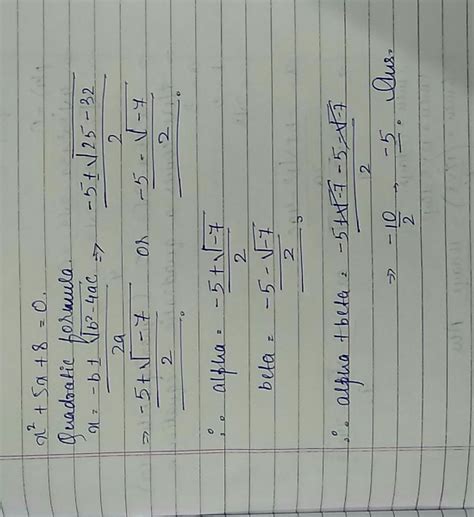 x² + 5a + 8 = 0.
Quadratic formula.
x = -b ± √b² - 4ac / 2a ⇒ -5 ± √25 - 32 / 2
⇒ -5 + √-7 / 2 or -5 - √-7 / 2 .
∴ alpha = -5 + √-7 / 2
beta = -5 - √-7 / 2 ,
∴ alpha + beta = -5 + √-7 - 5 - √-7 / 2
⇒ -10 / 2 → -5 . Ans.